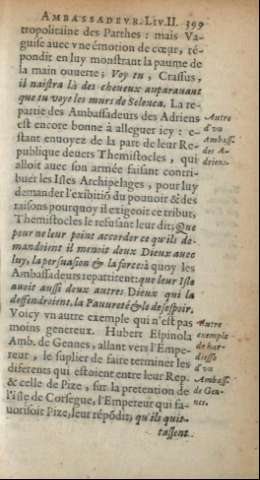 AMBASSADEVR. LIV. II. 399
tropolitaine des Parthes : mais Va-
guise auec vne émotion de cœur, ré-
pondit en luy monstrant la paume de
la main ouuerte; Voy tu, Crassus,
il naistra là des cheueux auparauant
que tu voye les murs de Seleuca. La re-
partie des Ambassadeurs des Adriens
est encore bonne à alleguer icy : e-
stant enuoyez de la part de leur Re-
publique deuers Themistocles, qui
alloit auec son armée faisant contri-
buer les Isles Archipelages, pour luy
demander l'exibitiō du pouuoir &des
raisons pourquoy il exigeoit ce tribut,
Themistocles le refusant leur dit; Que
pour ne leur point accorder ce qu'ils de-
mandoient il menoit deux Dieux auec
luy, la persuasion & la force: à quoy les
Ambassadeurs repartirent: que leur Isle
auoit aussi deux autres Dieux qui la
deffendroient, la Pauureté & le desespoir.
Voicy vn autre exemple qui n'est pas
moins genereux. Hubert Espinola
Amb. de Gennes, allant vers l'Empe-
reur, le suplier de faire terminer les
diferens qui estoient entre leur Rep.
& celle de Pize, sur la pretention de
l'isle de Corsegue, l'Empereur qui fa-
uorisoit Pize, leur répōdit; qu'ils quit-
tassent
Autre
d'vn
Ambass.
des A-
driens.
Autre
exemple
de har-
diesse
d'vn
Ambass.
de Gen-
nes.